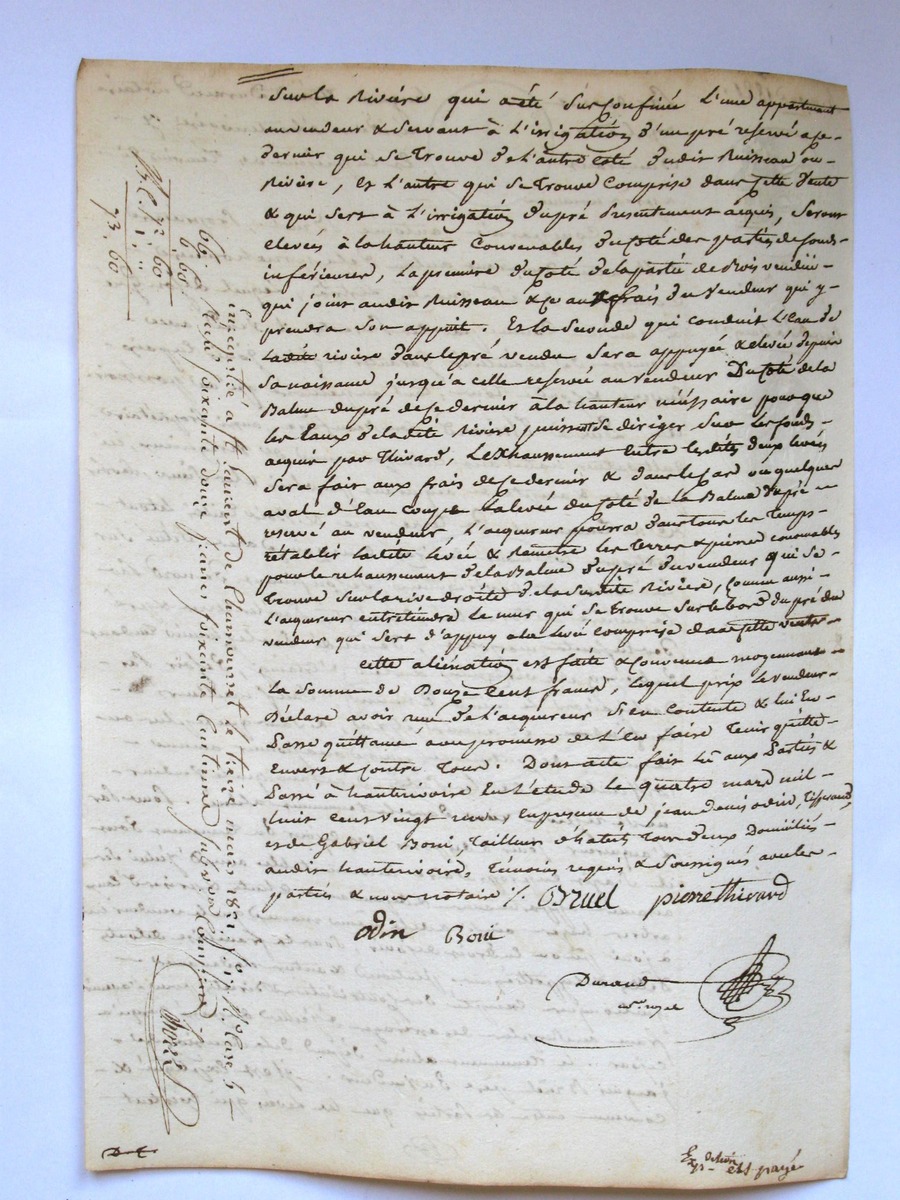 sur la Rivière qui a été sus confinée L'une appartenant
au vendeur & servant à L'irrigation d'un pré réservé a ce
dernier qui se Trouve de l'autre coté dudit Ruisseau ou
Rivière, et L'autre qui se trouve comprise dans cette Vente
& qui sert à L'irrigation du pré présentement acquis, seront
elevées à la hauteur convenable du coté des parties de fonds
inférieures, La première du coté de la partie de Bois vendue
qui joint audit Ruisseau & ce aux frais du Vendeur qui y
prendra son appuit. Et La Seconde qui conduit L'eau de
Ladite rivière dans le pré vendu sera appuyée & elevée depuis
sa naissance jusqu'a celle reservée au vendeur Du coté de la
Balme du pré de ce dernier à la hauteur nécéssaire pour que
les Eaux de la dite Rivière puissent se diriger sur les fonds
acquis par Thivard, L'exhaussement Entre lesdites deux levées
sera fait aux frais de ce dernier & dans le cas ou quelque
aval d'Eau coupe la levée du coté de la Balme du pré
reservé au vendeur, L'acquereur pourra dans tous les Temps
rétablir ladite levée & Remettre les Terres & pierres convenables
pour le rehaussement de la Balme du pré du vendeur qui se
trouve sur la rive droite de la susdite Rivière, Comme aussi
L'acquereur entretiendra le mur qui se trouve sur le bord du pré du
vendeur qui sert d'appuy a la levée comprise dans cette vente
cette aliénation est faite & convenue moyennant
La somme de Douze Cent francs, lequel prix le vendeur
Déclare avoir reçu de L'acquereur s'en contente & lui En
Passe quittance avec promesse de L'en faire Tenir quitte
Envers & contre Tous. Dont acte fait Lû aux Parties &
Passé à hauterivoire En L'étude le quatre mars mil
huit cent vingt En presence de jean Denis odin, Tisserand,
et de Gabriel Boni Tailleur d'habits Tous deux Domiciliés
audit hauterivoire, Témoins requis & Soussignés avec les
parties & nous notaire /. Bruel pierre thivard
odin Boni
Durand
Nre. royal
Enregistré à St Laurent de Chamousset le treize mars 182
Reçu soixante douze francs soixante Centimes subvon Comprise
66.
6. 60
72. 60
1. "
73. 60
est payé